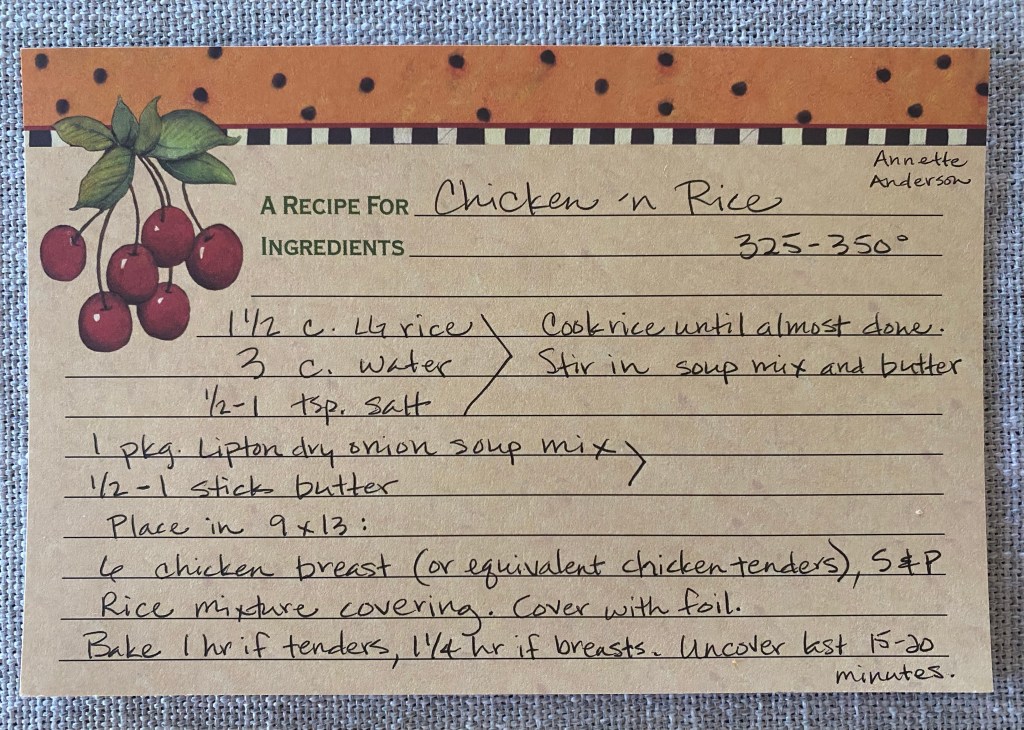 Annette
Anderson
A RECIPE FOR Chicken 'n Rice
INGREDIENTS 325-350°
1 1/2 c. LG rice Cook rice until almost done.
3 c. water Stir in soup mix and butter
1/2-1 tsp. salt
1 pkg. Lipton dry onion soup mix
1/2-1 stick butter
Place in 9x13:
6 chicken breast (or equivalent chicken tenders), S & P
Rice mixture covering. Cover with foil.
Bake 1 hr if tenders, 1 1/4 hr if breasts. Uncover last 15-20
minutes.